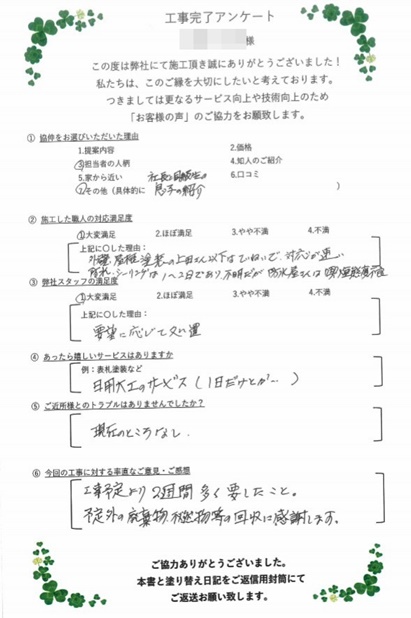 工事完了アンケート
様
この度は弊社にて施工頂き誠にありがとうございました！
私たちは、このご縁を大切にしたいと考えております。
つきましては更なるサービス向上や技術向上のため
「お客様の声」のご協力をお願致します。
① 協伸をお選びいただいた理由
1.提案内容 2.価格
③担当者の人柄 4.知人のご紹介
5.家から近い 社長と同級生の 6.口コミ
⑦その他（具体的に 息子の紹介 ）
② 施工した職人の対応満足度
①大変満足 2.ほぼ満足 3.やや不満 4.不満
上記に〇した理由：
外壁、屋根塗装の上田さん以下ていねいで、対応が速い
シーリングは1〜2日であり、不明だが防水屋さんは
③ 弊社スタッフの満足度
①大変満足 2.ほぼ満足 3.やや不満 4.不満
上記に〇した理由：
要望に応じて又い置
④ あったら嬉しいサービスはありますか
例：表札塗装など
日用大工のサービス（1日だけとか…）
⑤ ご近所様とのトラブルはありませんでしたか？
現在のところなし
⑥ 今回の工事に対する率直なご意見・ご感想
工事予定より2週間多く要したこと。
予定外の廃棄物 等の回収に感謝します。
ご協力ありがとうございました。
本書と塗り替え日記をご返信用封筒にて
ご返送お願い致します。